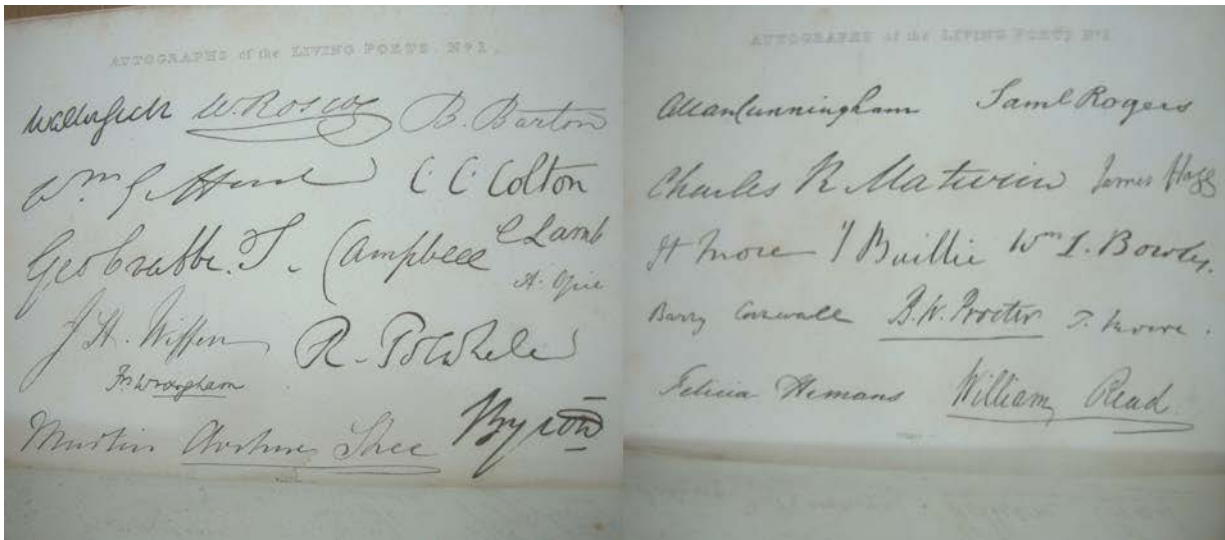 AUTOGRAPHS of the LIVING POETS. No 1.
Walter Scott W. Roscoe B. Barton
C. C. Colton
Geo Crabbe. T. Campbell C Lamb
A. Opie
J. H. Wiffen R. Polwhele
Fs Wrangham
Martin Archer Shee Byron
AUTOGRAPHS of the LIVING POETS No
Allan Cunningham Saml Rogers
Charles R Maturin James Hogg
H More J Baillie Wm L. Bowles.
Barry Cornwall B. W. Procter T. Moore.
Felicia Hemans William Read